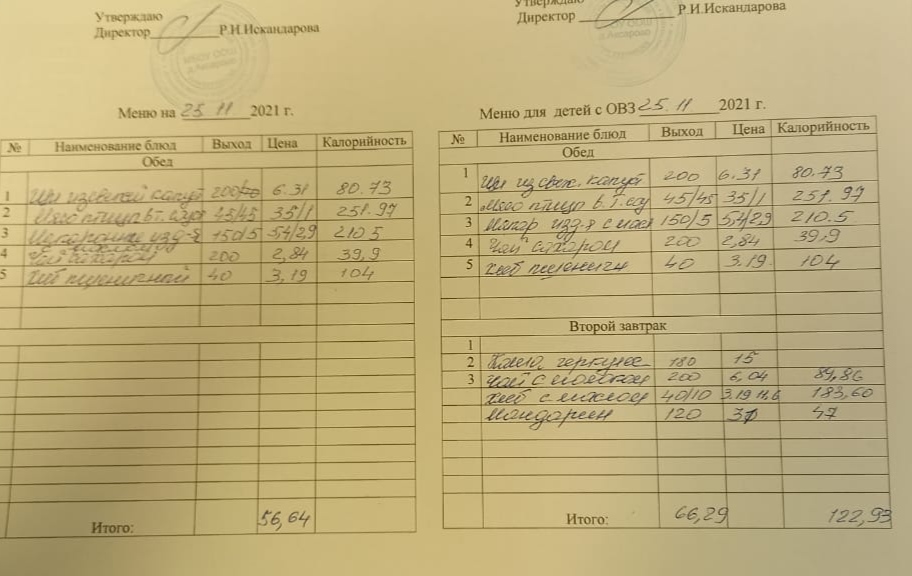 Утверждаю
Директор Р.И.Искандарова
Меню на 25 11 2021 г.
№ Наименование блюд Выход Цена Калорийность
Обед
1 Щи из свежей капуст 200/ 6.31 80.73
2 Мясо птицы в т. 45/45 35/1 251.97
3 Макаронные изд-я 150/5 5,4/2,9 210.5
4 Чай сахаром 200 2,84 39,9
5 Хлеб пшеничный 40 3,19 104
Итого: 56,64
Утверждаю
Директор Р.И.Искандарова
Меню для детей с ОВЗ 25. 11 2021 г.
№ Наименование блюд Выход Цена Калорийность
Обед
1 Щи из свеж. капуст 200 6.31 80.73
2 Мясо птицы в. т. 45/45 35/1 251.97
3 Макар изд-я с масл 150/5 5,4/2,9 210.5
4 Чай сахаром 200 2,84 39,9
5 Хлеб пшеничн 40 3.19. 104
Второй завтрак
1
2 Каша геркулес 180 15
3 Чай с молоком 200 6,04 89,86
Хлеб с маслом 40/10 3.19 11,6 183,60
Мандарин 120 47
Итого: 66,29 122,93